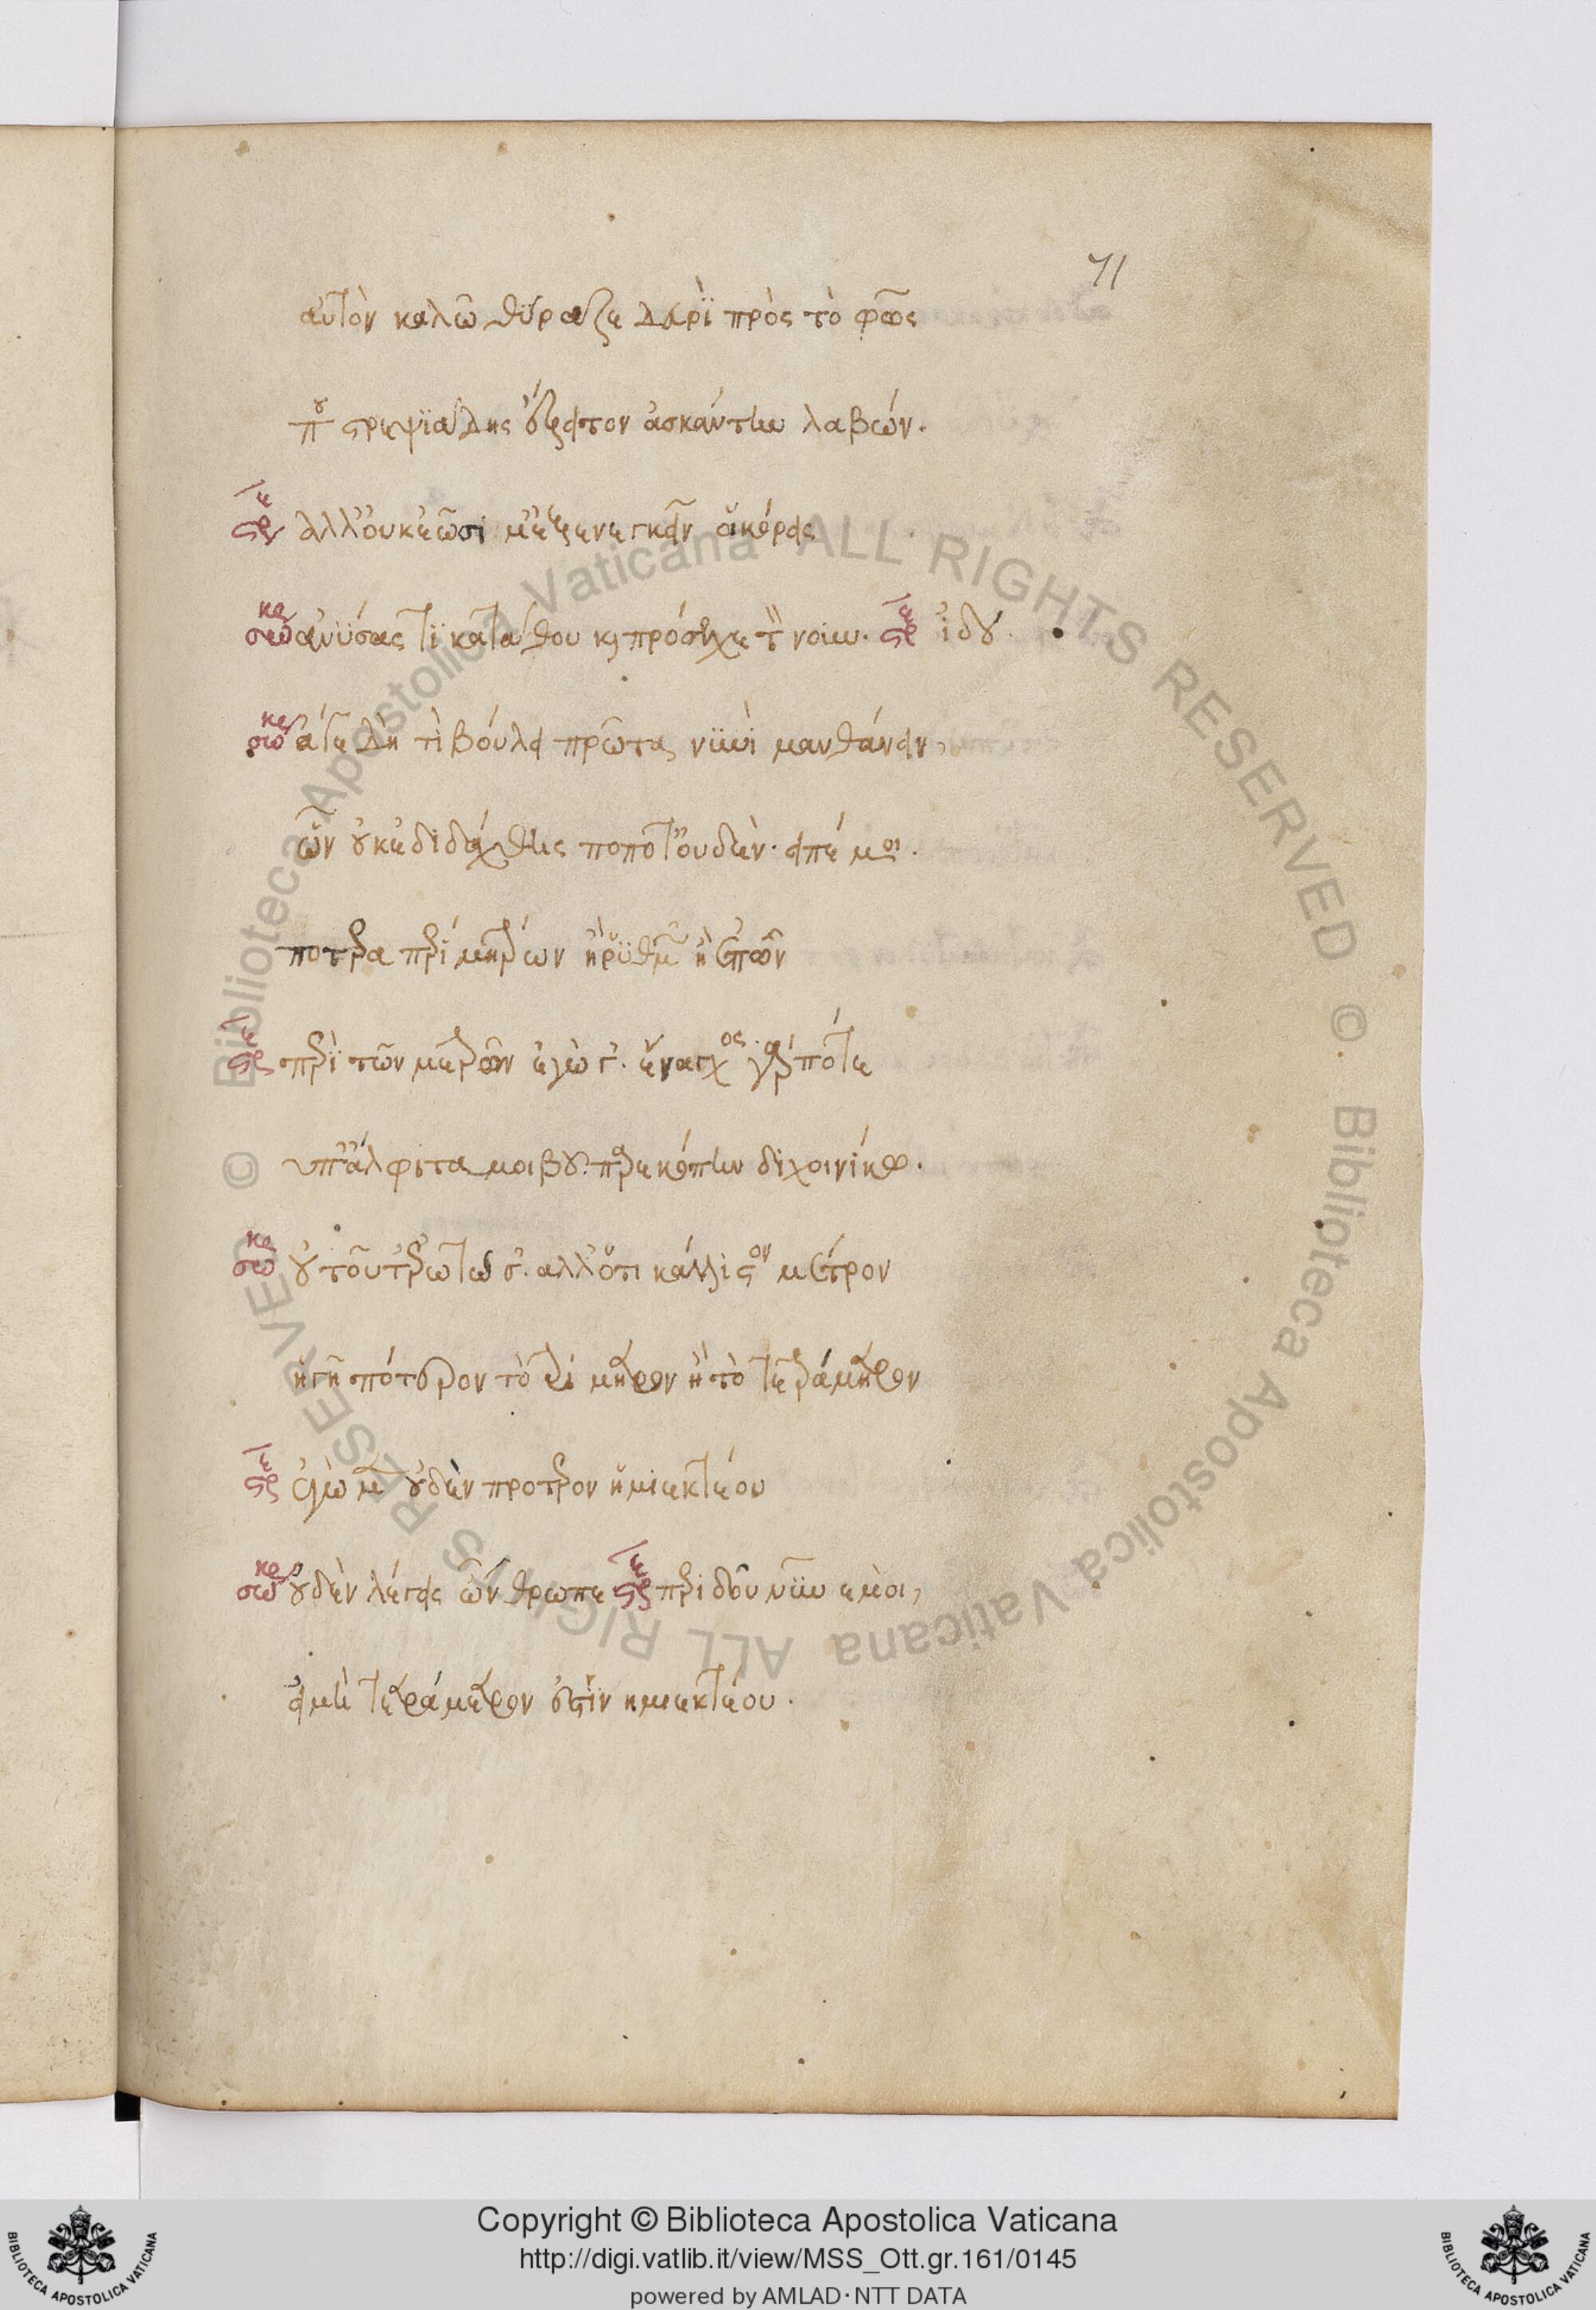 71
αὐτὸν καλῶ θύραζε δευρὶ πρὸς τὸ φῶς
ποῦ στρεψιάδης ἔξει τὸν ἀσκάντην λαβών.
στρε ἀλλ' οὐκ ἐῶσί μ' ἐξενεγκεῖν οἱ κόρεις
σωκρ ἀνύσας τὶ κατάθου καὶ πρόσεχε τὸν νοῦν. στρε ἰδού.
σωκρ ἄγε δὴ τί βούλει πρῶτα νυνὶ μανθάνειν,
ὧν οὐκ ἐδιδάχθης πώποτ' οὐδέν. εἰπέ μοι.
πότερα περὶ μέτρων ἢ ῥυθμῶν ἢ ἐπῶν
στρε περὶ τῶν μέτρων ἐγώ γ'. ἔναγχος γάρ ποτε
ὑπ' ἀλφιταμοιβοῦ παρεκόπην διχοινίκω.
σωκρ οὐ τοῦτ' ἐρωτῶ σ'. ἀλλ' ὅτι κάλλιστον μέτρον
ἡγῇ πότερον τὸ τρίμετρον ἢ τὸ τετράμετρον
στρε ἐγὼ μὲν οὐδὲν πρότερον ἡμιεκτέου
σωκρ οὐδὲν λέγεις ὤνθρωπε στρε περίδου νῦν ἐμοί,
εἰ μὴ τετράμετρόν ἐστιν ἡμιεκτέου.
Copyright © Biblioteca Apostolica Vaticana
http://digi.vatlib.it/view/MSS_Ott.gr.161/0145
powered by AMLAD·NTT DATA
BIBLIOTECA APOSTOLICA VATICANA
BIBLIOTECA APOSTOLICA VATICANA
© Biblioteca Apostolica Vaticana ALL RIGHTS RESERVED
© Biblioteca Apostolica Vaticana ALL RIGHTS RESERVED